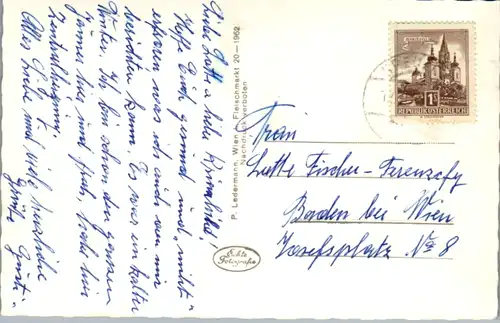 Liebe Lotte u. liebe Krimhilde!
Hoffe Euch gesund und "nicht"
erfroren, was ich auch von mir
berichten kann. Es war ein kalter
Winter. Ich bin schon den ganzen
Jänner hier und froh, daß kein
Zentralheizung
Alles Liebe und viele herzliche
Grüße Gusti
P. Ledermann, Wien I, Fleischmarkt 20—1962
Nachdruck verboten
Echte
Fotografie
MARIAZELL
1S
REPUBLIK ÖSTERREICH
Frau
Lotte Fischer-Ferenczfy
Baden bei Wien
Josefsplatz No 8